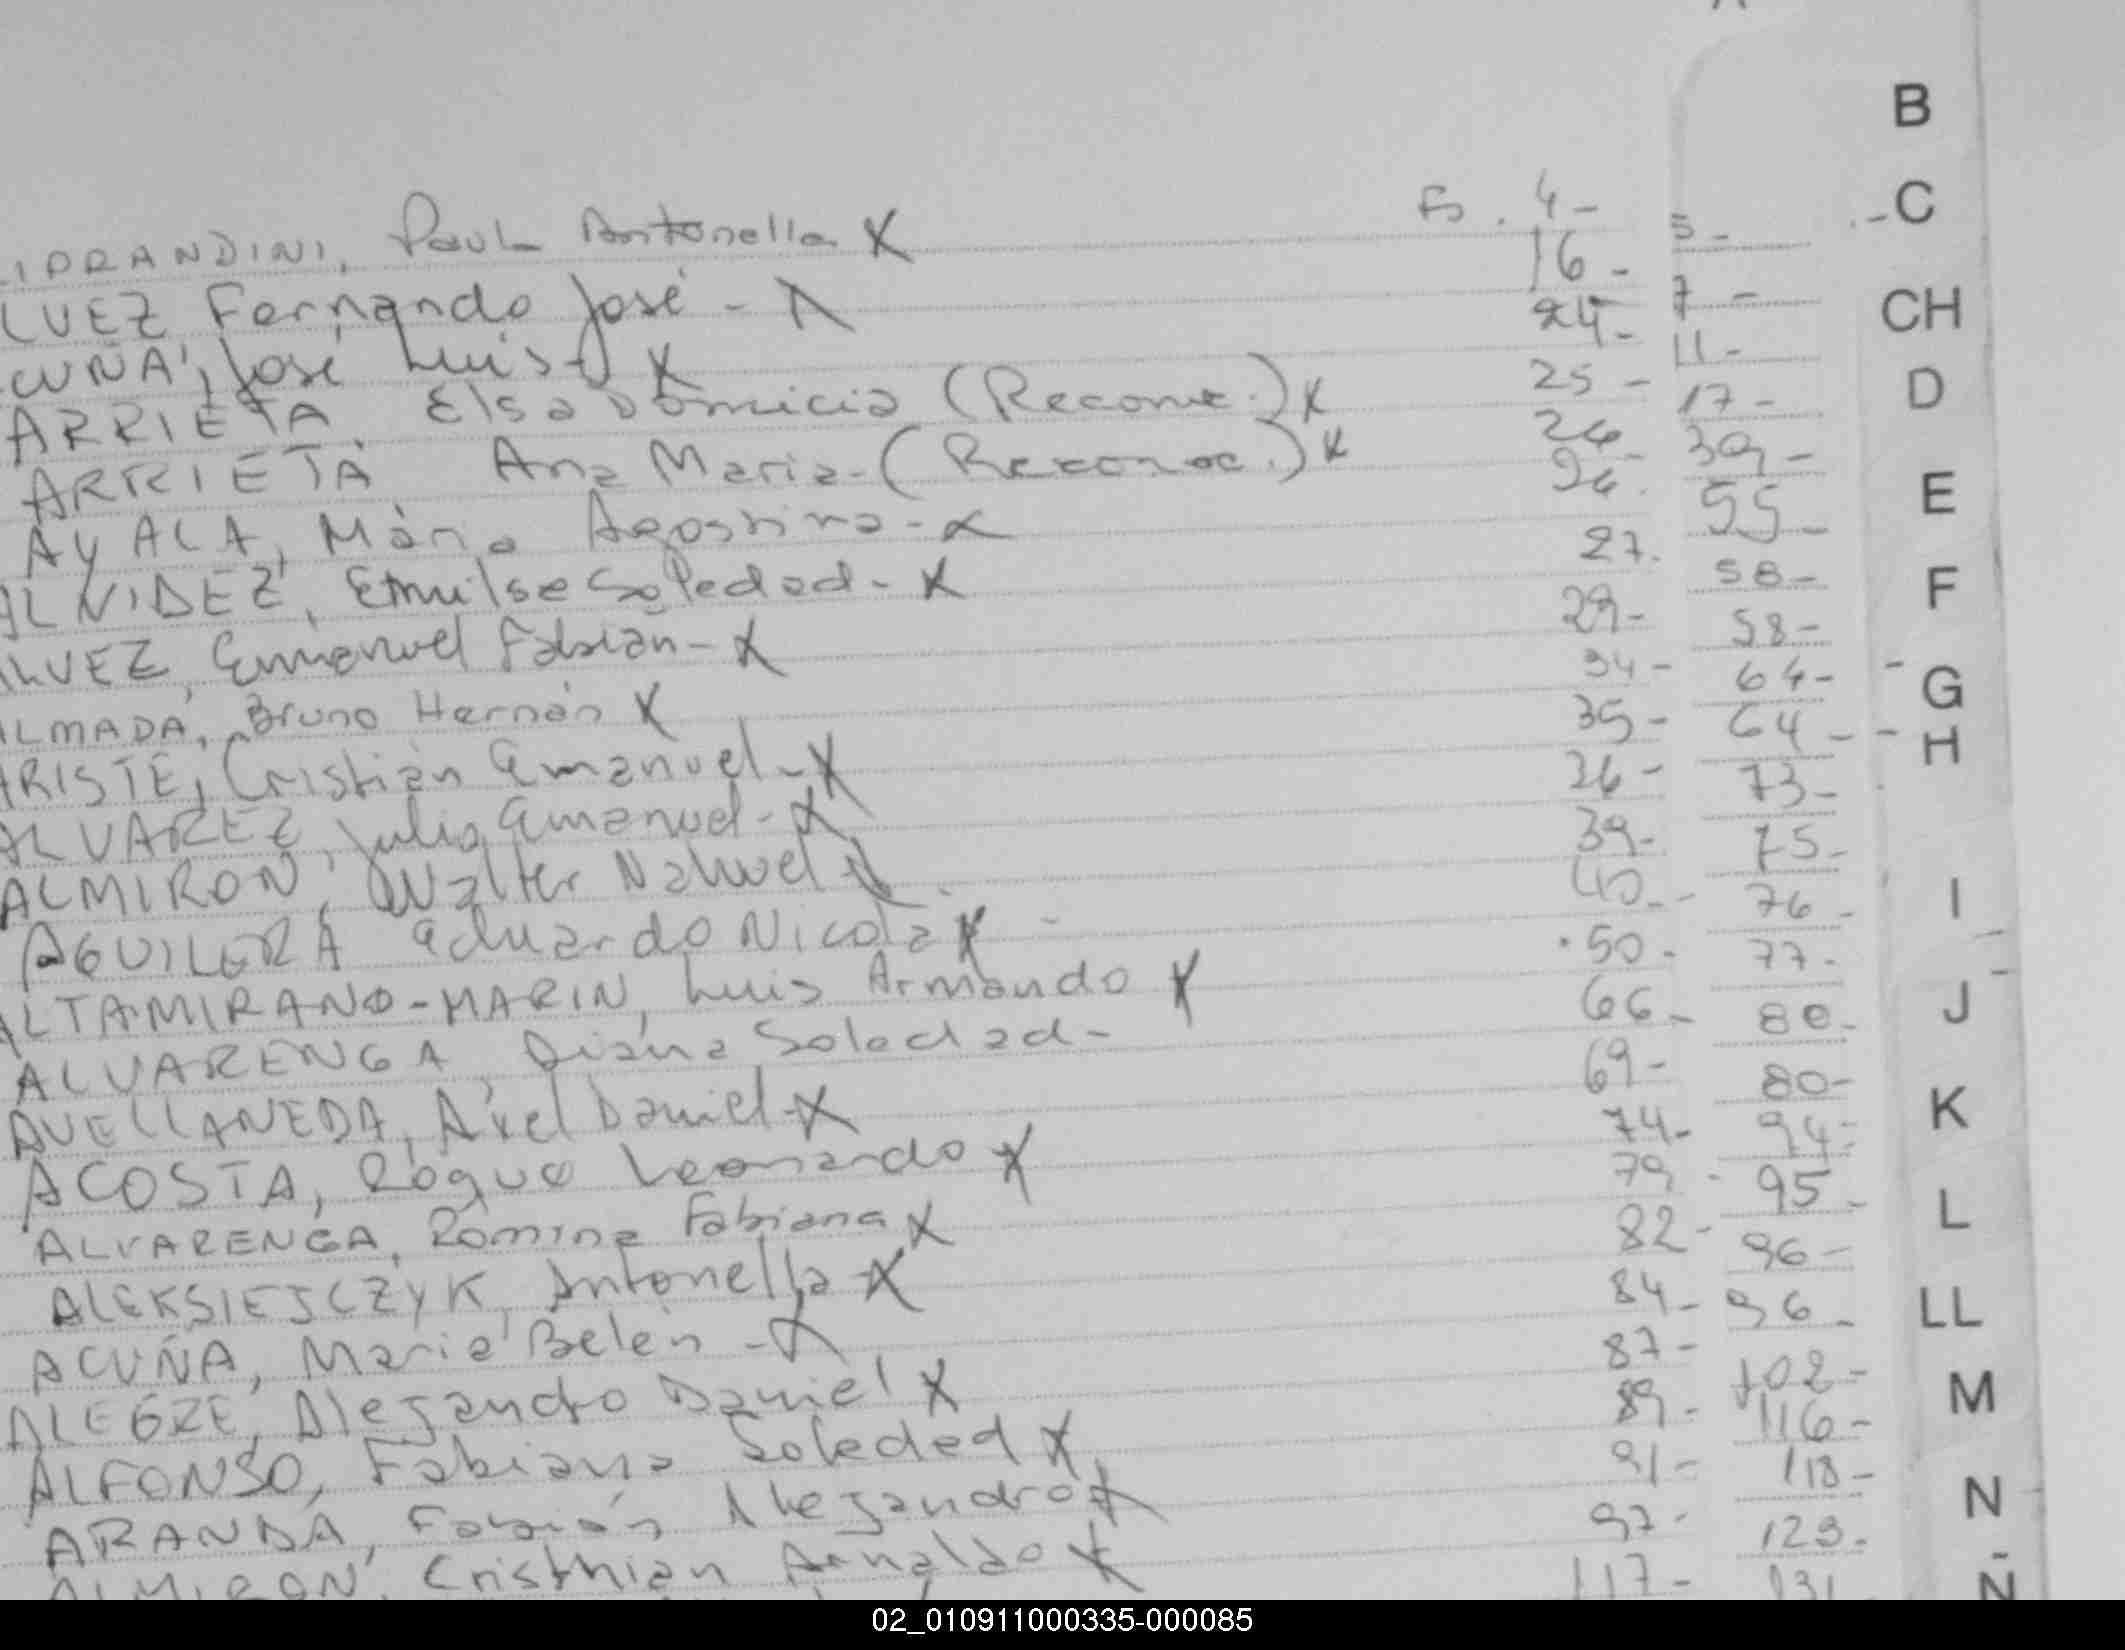 IPRANDINI, Paula Antonella X Fs. 4-
LVEZ Fernando José - X 16-
CUÑA, José Luis - X 24-
ARRIETA, Elsa Domicia (Reconoc.) X 25-
ARRIETA Ana Maria - (Reconoc.) X 26-
AYALA, María Agostina - X 26.
ALNIDEZ, Emilse Soledad - X 27.
ALVEZ, Emanuel Fabian - X 29-
ALMADA, Bruno Hernán X 34-
ARISTE, Cristian Emanuel - X 35-
ALVAREZ, Julio Emanuel - X 36-
ALMIRON, Walter Nahuel X 39-
AGUILERA Eduardo Nicola X 40-
ALTAMIRANO-MARIN, Luis Armando X 50-
ALVARENGA, Diana Soledad - 66-
AVELLANEDA, Axel Daniel - X 69-
ACOSTA, Roque Leonardo X 74-
ALVARENGA, Romina Fabiana X 79-
ALEKSIEJCZYK, Antonella - X 82-
ACUÑA, Maria Belén - X 84-
ALEGRE, Alejandro Daniel X 87-
ALFONSO, Fabiana Soledad X 89-
ARANDA, Fabián Alejandro X 91-
ALMIRON, Cristhian Arnaldo X 97-
117-
5-
7-
11-
17-
39-
55-
58-
58-
64-
64-
73-
75-
76-
77-
80-
80-
94-
95-
96-
96-
102-
116-
118-
123-
131
B
C
CH
D
E
F
G
H
I
J
K
L
LL
M
N
Ñ
02_010911000335-000085